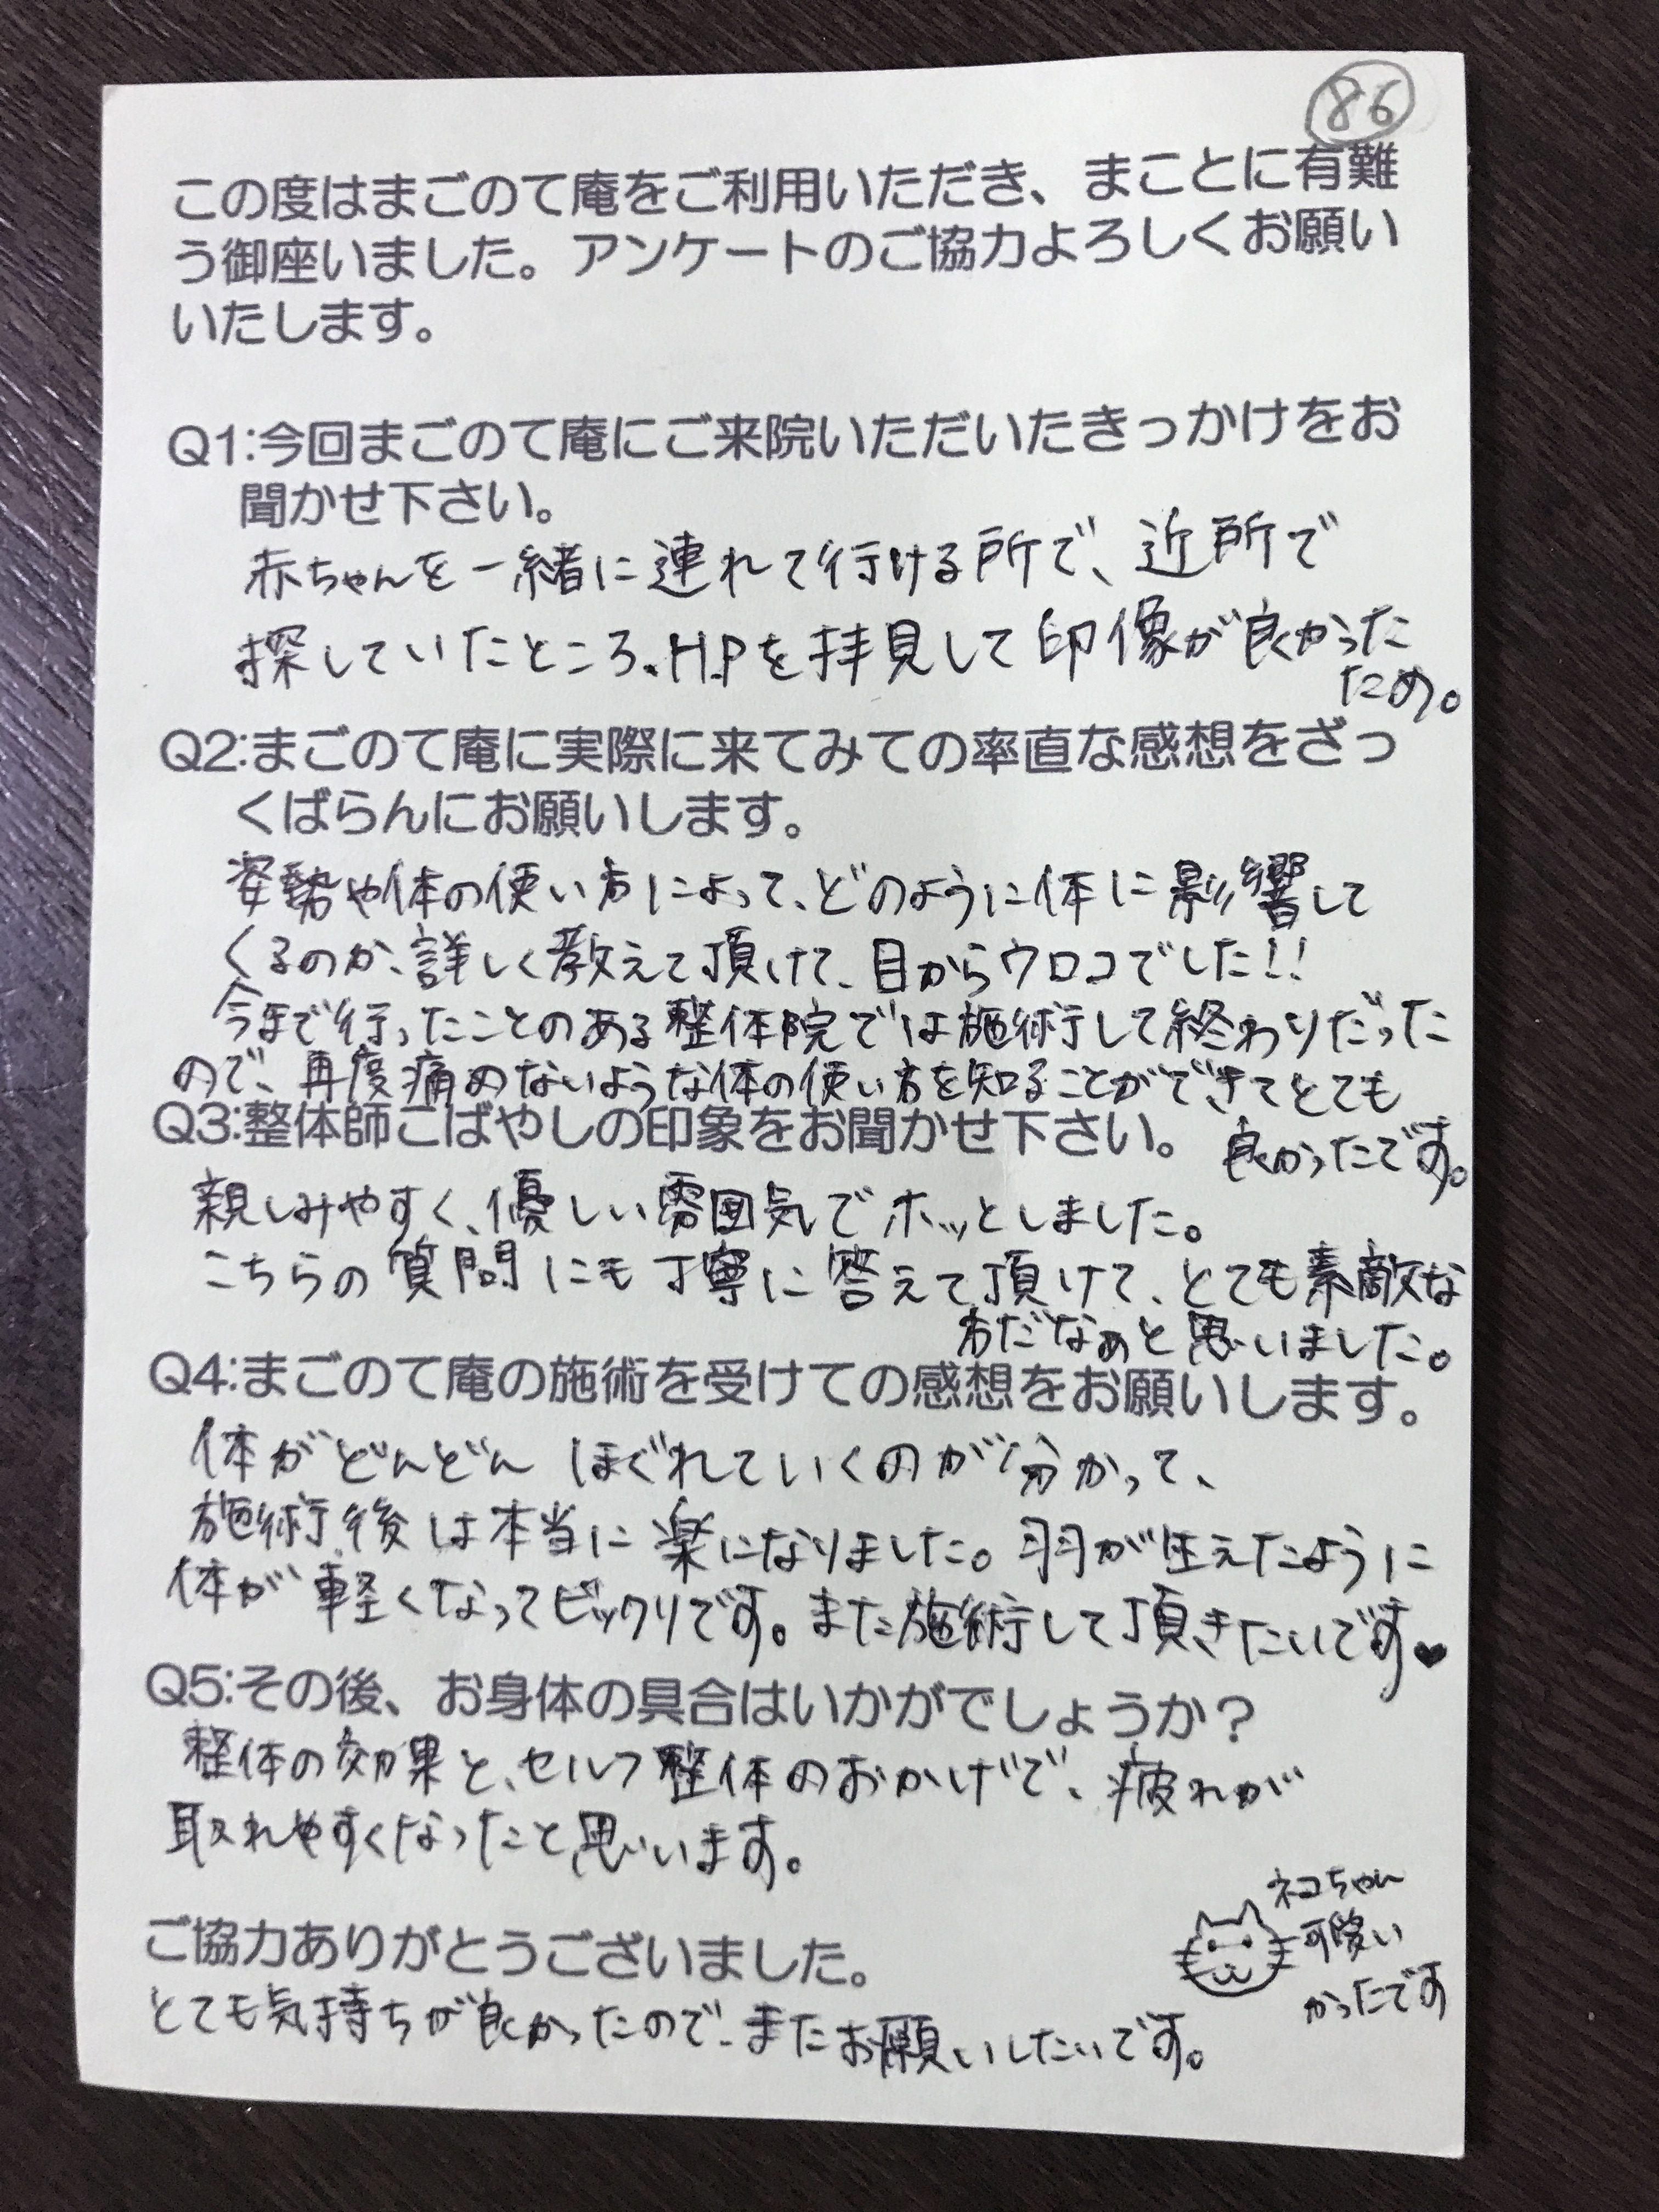 86
この度はまごのて庵をご利用いただき、まことに有難
う御座いました。アンケートのご協力よろしくお願い
いたします。
Q1:今回まごのて庵にご来院いただいたきっかけをお
聞かせ下さい。
赤ちゃんを一緒に連れて行ける所で、近所で
探していたところ、H.Pを拝見して印像が良かった
ため。
Q2:まごのて庵に実際に来てみての率直な感想をざっ
くばらんにお願いします。
姿勢や体の使い方によって、どのように体に影響して
くるのか、詳しく教えて頂けて、目からウロコでした!!
今まで行ったことのある整体院では施術して終わりだった
ので、再度痛めないような体の使い方を知ることができてとても
良かったです。
Q3:整体師こばやしの印象をお聞かせ下さい。
親しみやすく、優しい雰囲気でホッとしました。
こちらの質問にも丁寧に答えて頂けて、とても素敵な
方だなぁと思いました。
Q4:まごのて庵の施術を受けての感想をお願いします。
体がどんどんほぐれていくのが分かって、
施術後は本当に楽になりました。羽が生えたように
体が軽くなってビックリです。また施術して頂きたいです♥
Q5:その後、お身体の具合はいかがでしょうか?
整体の効果と、セルフ整体のおかげで、疲れが
取れやすくなったと思います。
ご協力ありがとうございました。
とても気持ちが良かったので、またお願いしたいです。
ネコちゃん
可愛い
かったです